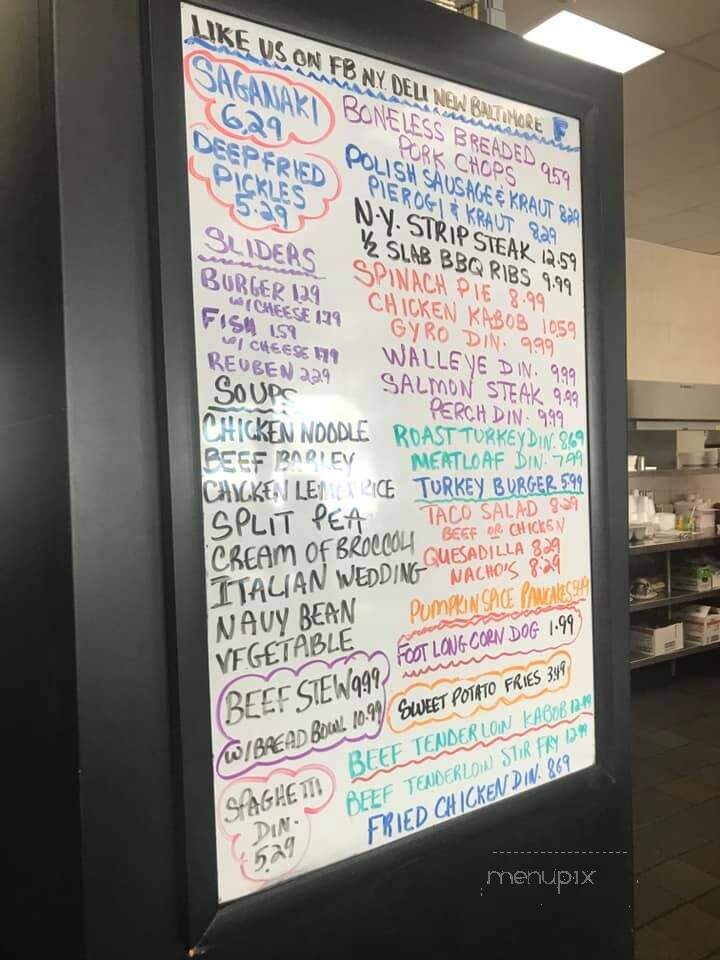 LIKE US ON FB NY. DELI NEW BALTIMORE F
SAGANAKI
6.29
DEEP FRIED
PICKLES
5.29
SLIDERS
BURGER 1.29
W/CHEESE 1.79
FISH 1.59
W/ CHEESE
REUBEN 2.29
SOUPS
CHICKEN NOODLE
BEEF BARLEY
CHICKEN LEMON RICE
SPLIT PEA
CREAM OF BROCCOLI
ITALIAN WEDDING
NAVY BEAN
VEGETABLE
BEEF STEW 9.99
W/BREAD BOWL 10.99
SPAGHETTI
DIN.
5.29
BONELESS BREADED
PORK CHOPS 9.59
POLISH SAUSAGE & KRAUT 8.29
PIEROGI & KRAUT 8.29
N.Y. STRIP STEAK 12.59
1/2 SLAB BBQ RIBS 9.99
SPINACH PIE 8.99
CHICKEN KABOB 10.59
GYRO DIN. 9.99
WALLEYE DIN. 9.99
SALMON STEAK 9.99
PERCH DIN. 9.99
ROAST TURKEY DIN. 8.69
MEATLOAF DIN. 7.99
TURKEY BURGER 5.99
TACO SALAD 8.29
BEEF OR CHICKEN
QUESADILLA 8.29
NACHO'S 8.29
PUMPKIN SPICE PANCAKES
FOOT LONG CORN DOG 1.99
SWEET POTATO FRIES 3.49
BEEF TENDERLOIN KABOB 12.99
BEEF TENDERLOIN STIR FRY 12.99
FRIED CHICKEN DIN. 8.69
menupix